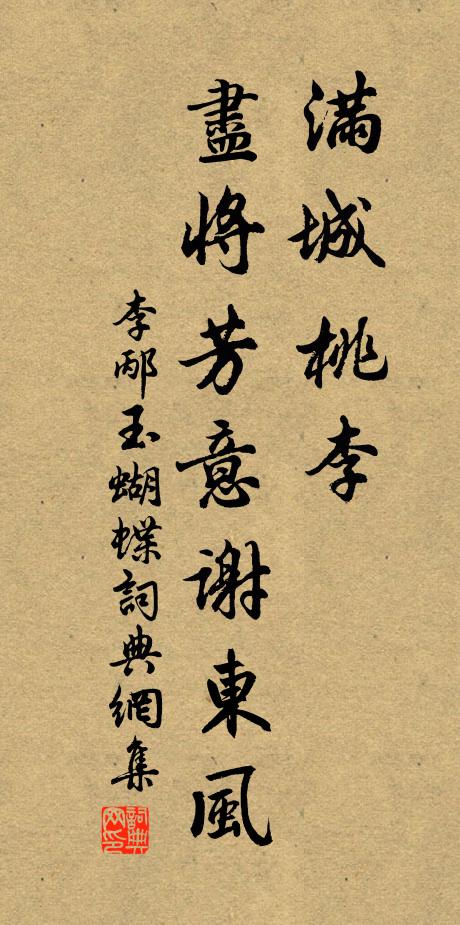 滿城桃李
盡將芳意謝東風
李邴玉蝴蝶詞典網集
詞典網印